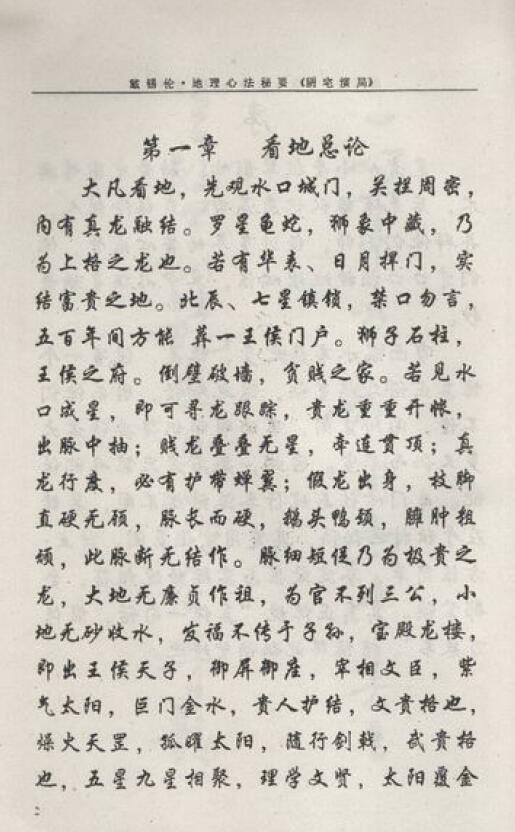 戴锡伦·地理心法秘要《阴宅演局》
第一章 看地总论
大凡看地，先观水口城门，关捏周密，
内有真龙融结。罗星龟蛇，狮象中藏，乃
为上格之龙也。若有华表、日月捍门，实
结富贵之地。北辰、七星镇锁，禁口勿言，
五百年间方能 葬一王侯门户。狮子石柱，
王侯之府。倒壁破墙，贫贱之家。若见水
口成星，即可寻龙跟踪，贵龙重重开帐，
出脉中抽；贱龙叠叠无星，牵连贯顶；真
龙行度，必有护带蝉翼；假龙出身，枝脚
直硬无顾，脉长而硬，鹅头鸭颈，臃肿粗
顽，此脉断无结作。脉细短促乃为极贵之
龙，大地无廉贞作祖，为官不到三公，小
地无砂收水，发福不传于子孙，宝殿龙楼，
即出王侯天子，御屏御座，宰相文臣，紫
气太阳，巨门金水，贵人护结，文贵格也，
燥火天罡，孤曜太阳，随行剑戟，武贵格
也，五星九星相聚，理学文贤，太阳覆金
2